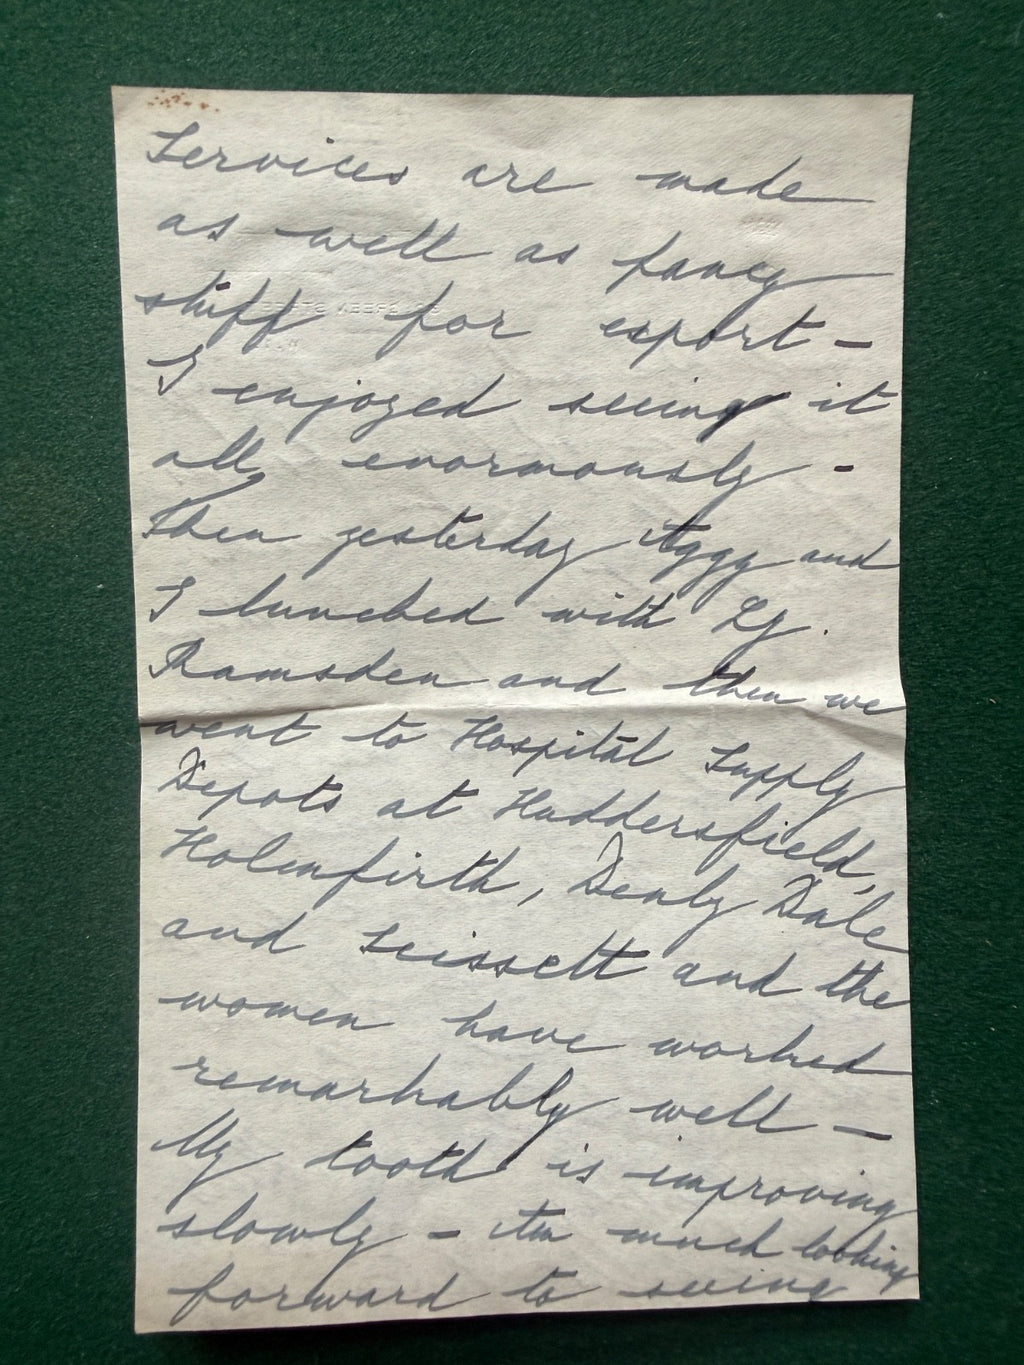 Services are made
as well as fancy
stuff for export -
I enjoyed seeing it
all enormously -
Then yesterday Aggy and
I lunched with Ly.
Ramsden and then we
went to Hospital Supply
Depots at Huddersfield,
Holmfirth, Denly Dale
and Scissett and the
women have worked
remarkably well -
My tooth is improving
slowly - Am much looking
forward to seeing